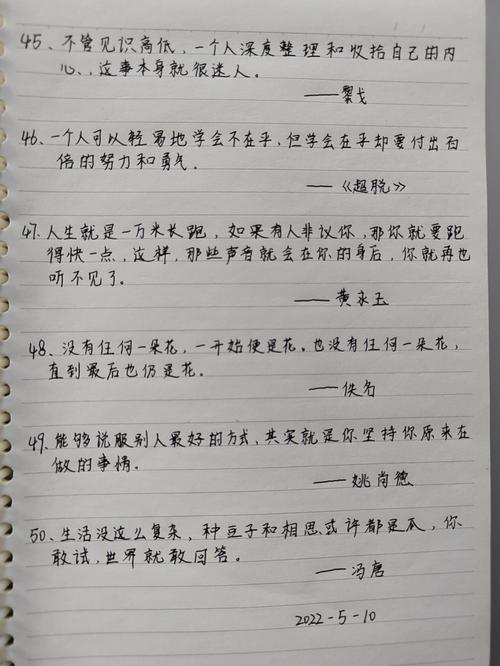 45、不管见识高低，一个人深度整理和收拾自己的内
心、，这事本身就很迷人。
——黎戈
46、一个人可以轻易地学会不在乎，但学会在乎却要付出百
倍的努力和勇气。
——《超脱》
47、人生就是一万米长跑，如果有人非议你，那你就要跑
得快一点，这样，那些声音就会在你的身后，你就再也
听不见了。
——黄永玉
48、没有任何一朵花，一开始便是花。也没有任何一朵花，
直到最后也仍是花。
——佚名
49、能够说服别人最好的方式，其实就是你坚持你原来在
做的事情。
——姚尚德
50、生活没这么复杂，种豆子和相思或许都是瓜，你
敢试，世界就敢回答。
——冯唐
2022-5-10